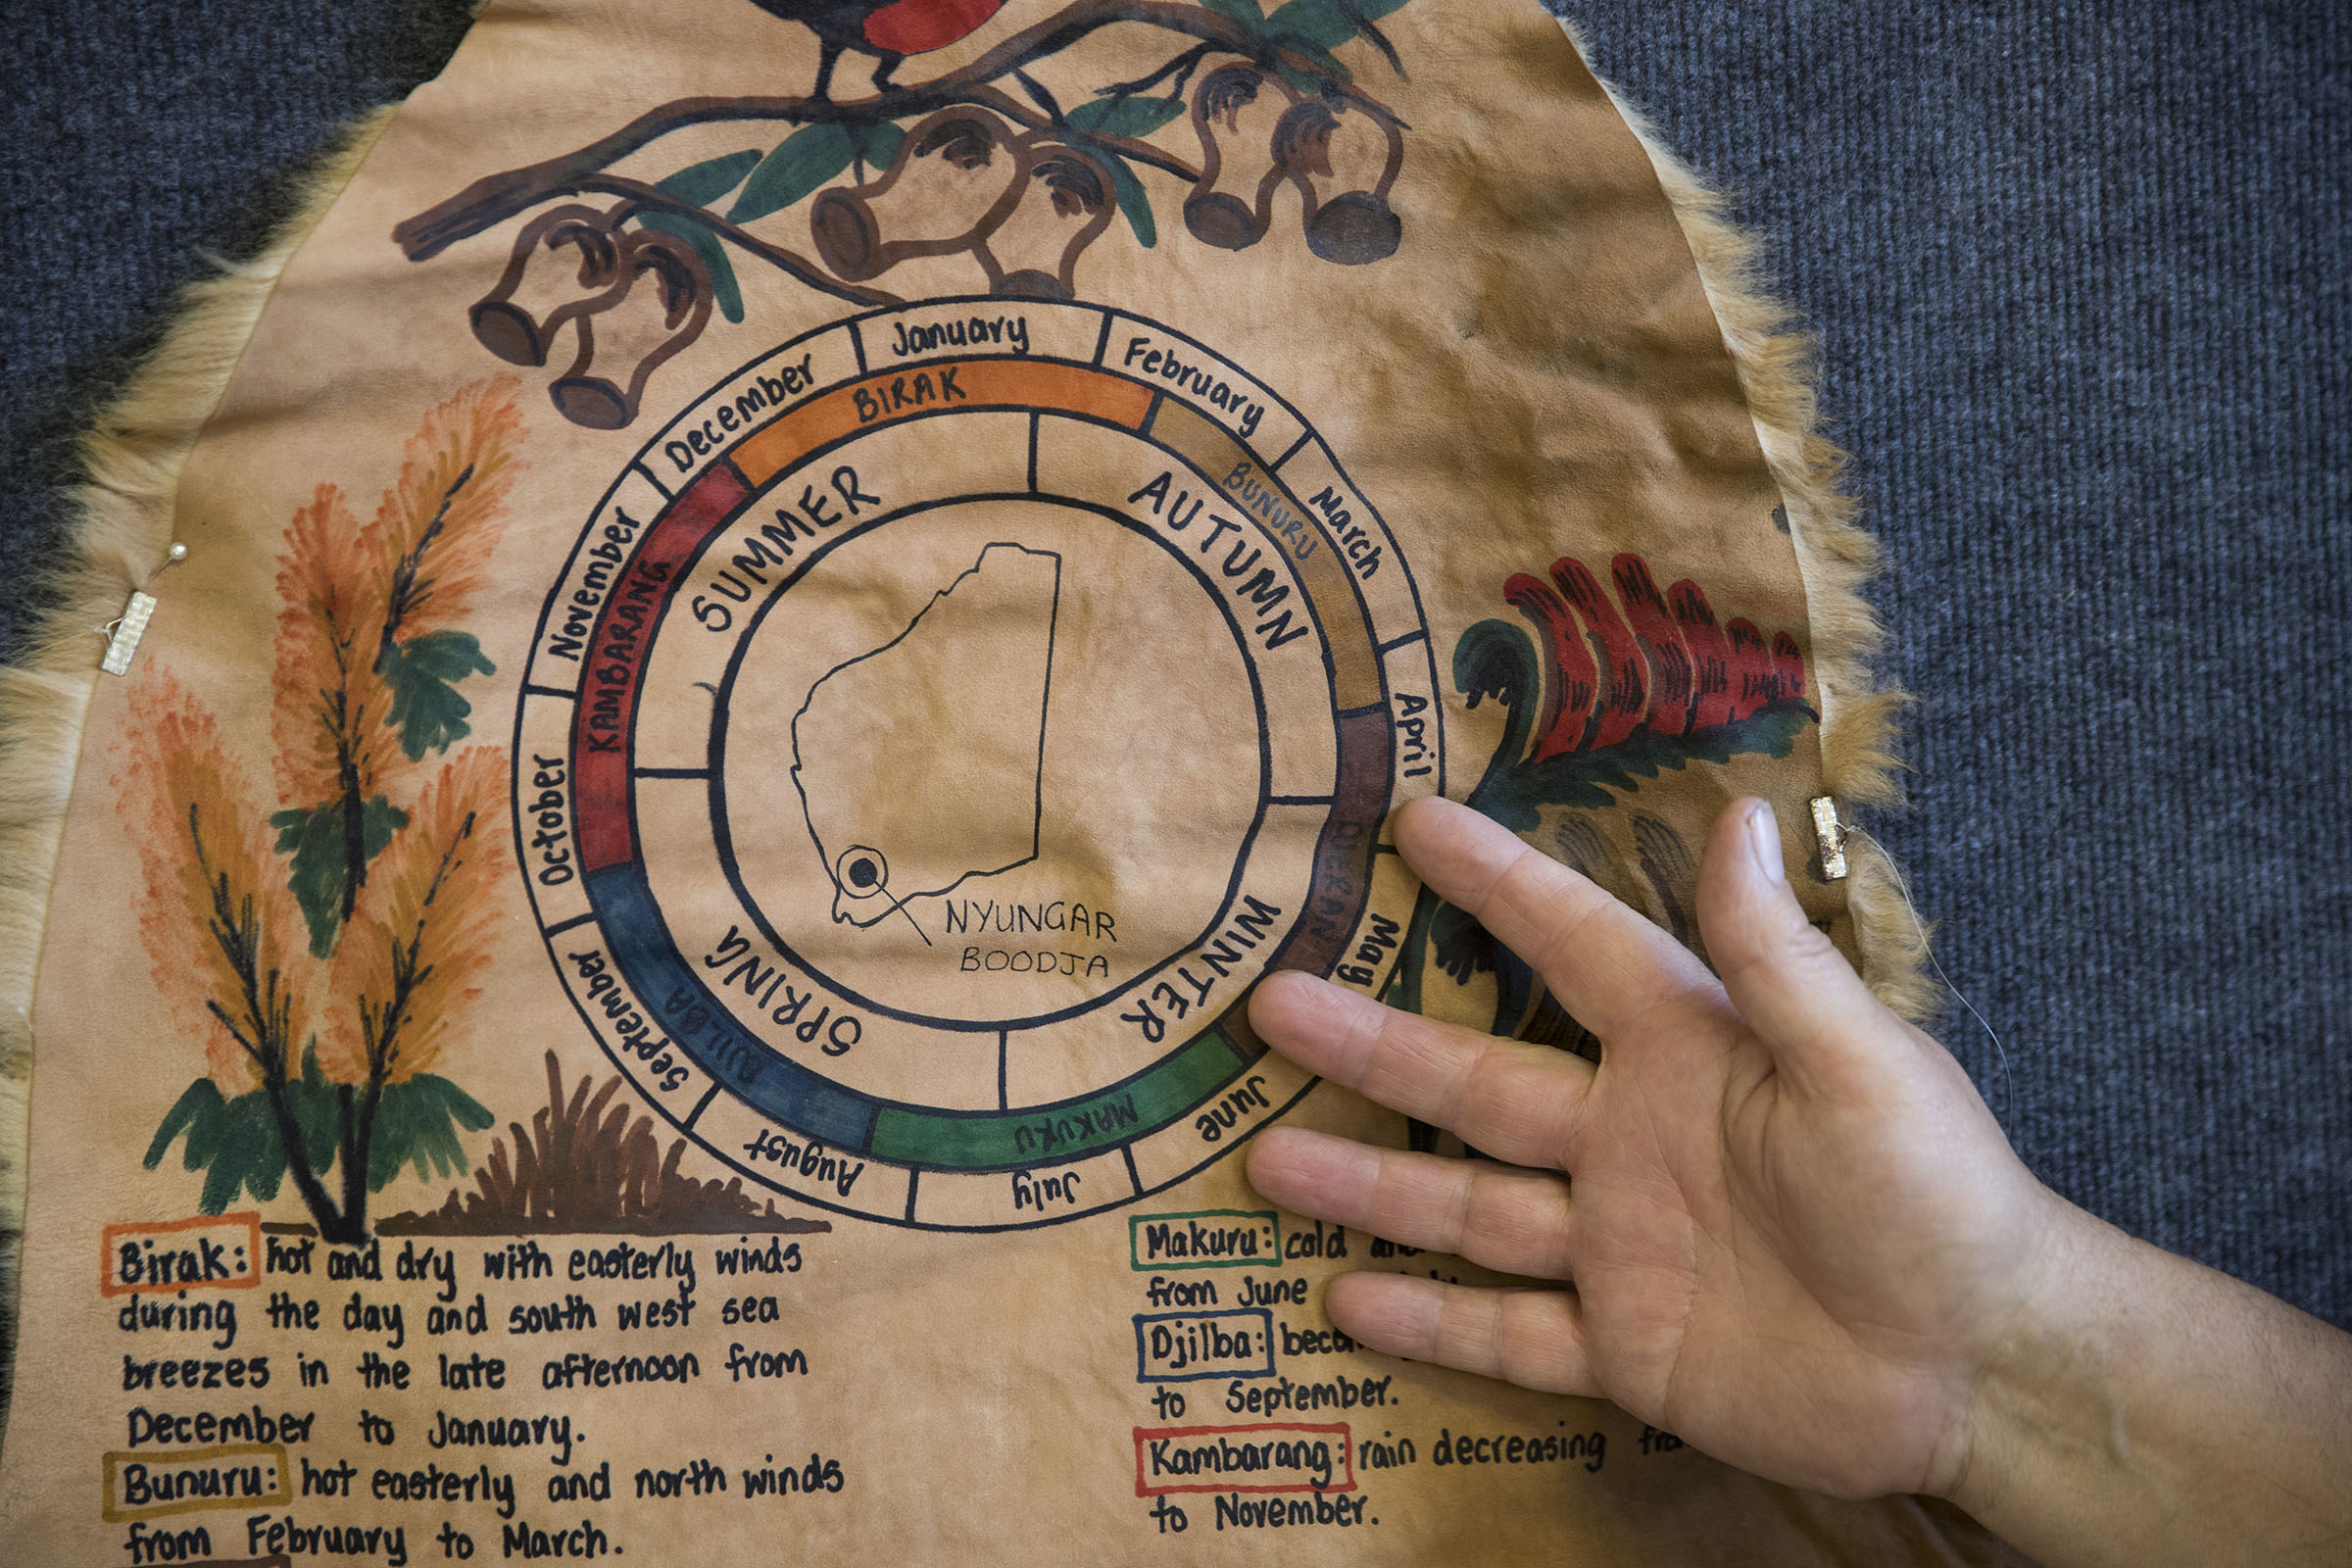 January
February
March
April
May
June
July
August
September
October
November
December
BIRAK
BUNURU
MAKURU
DJILBA
KAMBARANG
SUMMER
AUTUMN
WINTER
SPRING
NYUNGAR
BOODJA
Birak: hot and dry with easterly winds
during the day and south west sea
breezes in the late afternoon from
December to January.
Bunuru: hot easterly and north winds
from February to March.
Makuru: cold
from June
Djilba:
to September.
Kambarang: rain decreasing
to November.